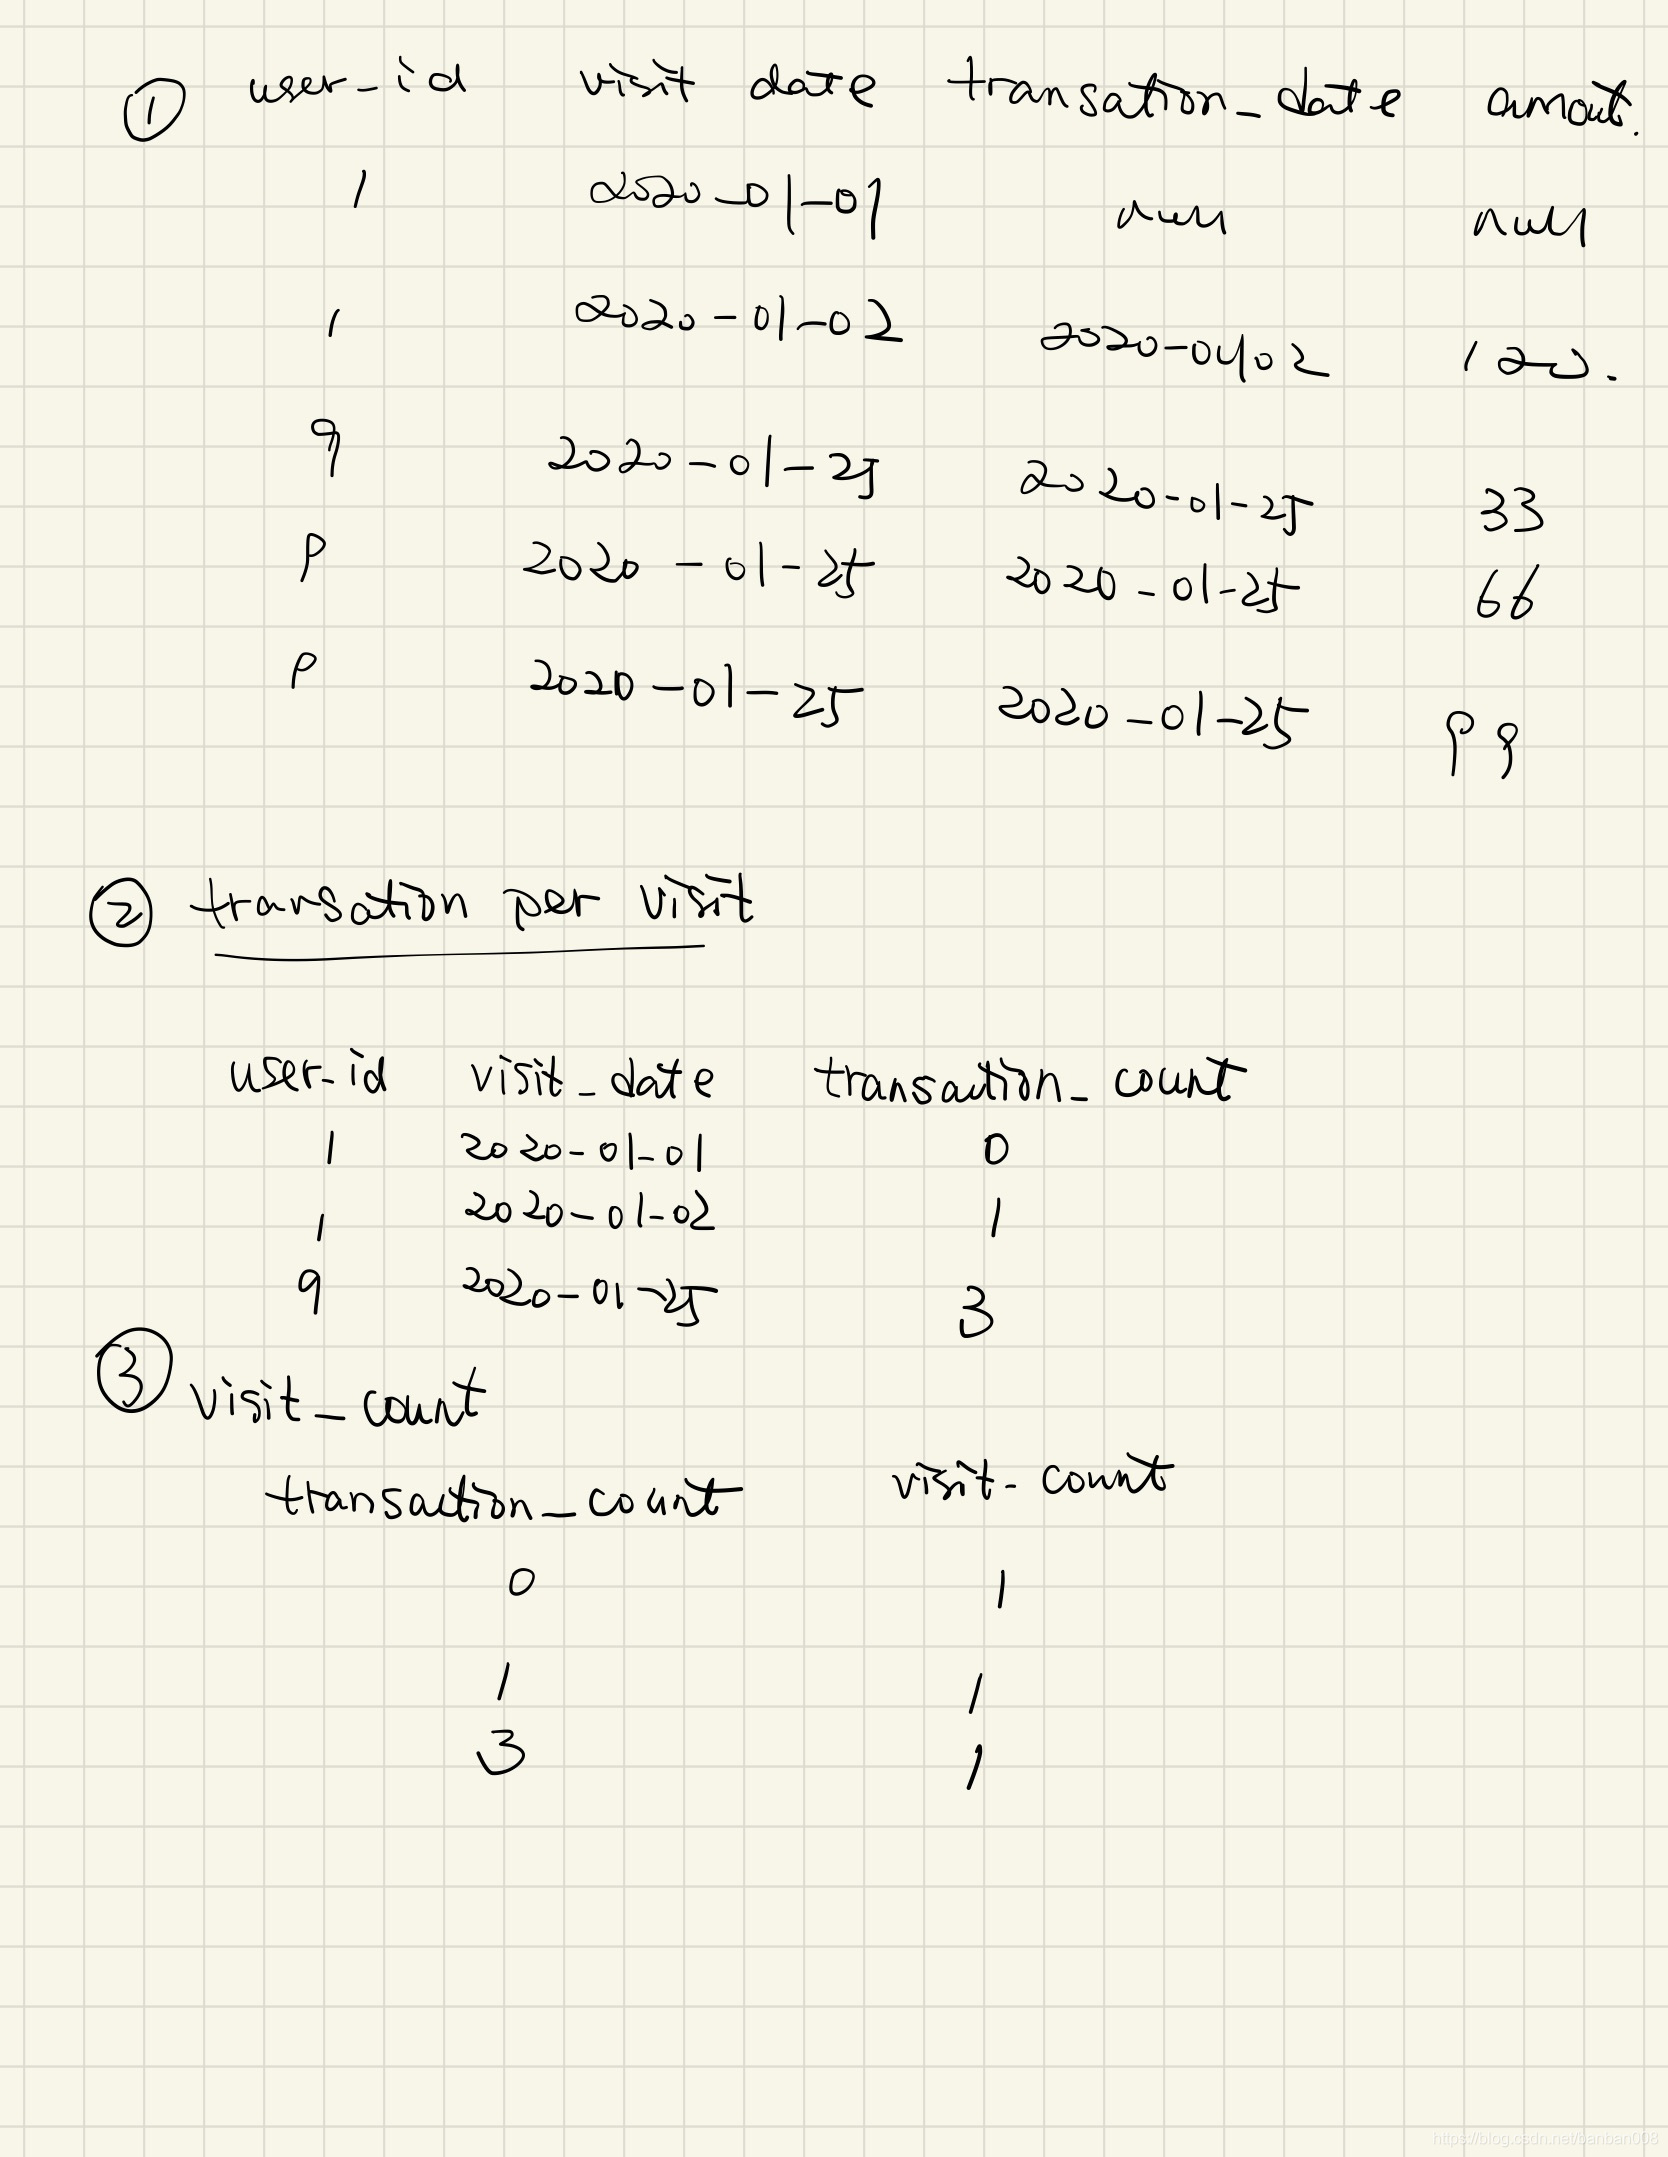 ① user_id visit date transation_date amout.
1 2020-01-01 null null
1 2020-01-02 2020-01-02 120.
9 2020-01-25 2020-01-25 33
9 2020-01-25 2020-01-25 66
9 2020-01-25 2020-01-25 99
② transation per visit
user_id visit_date transaction_count
1 2020-01-01 0
1 2020-01-02 1
9 2020-01-25 3
③ visit_count
transaction_count visit_count
0 1
1 1
3 1
https://blog.csdn.net/banban008